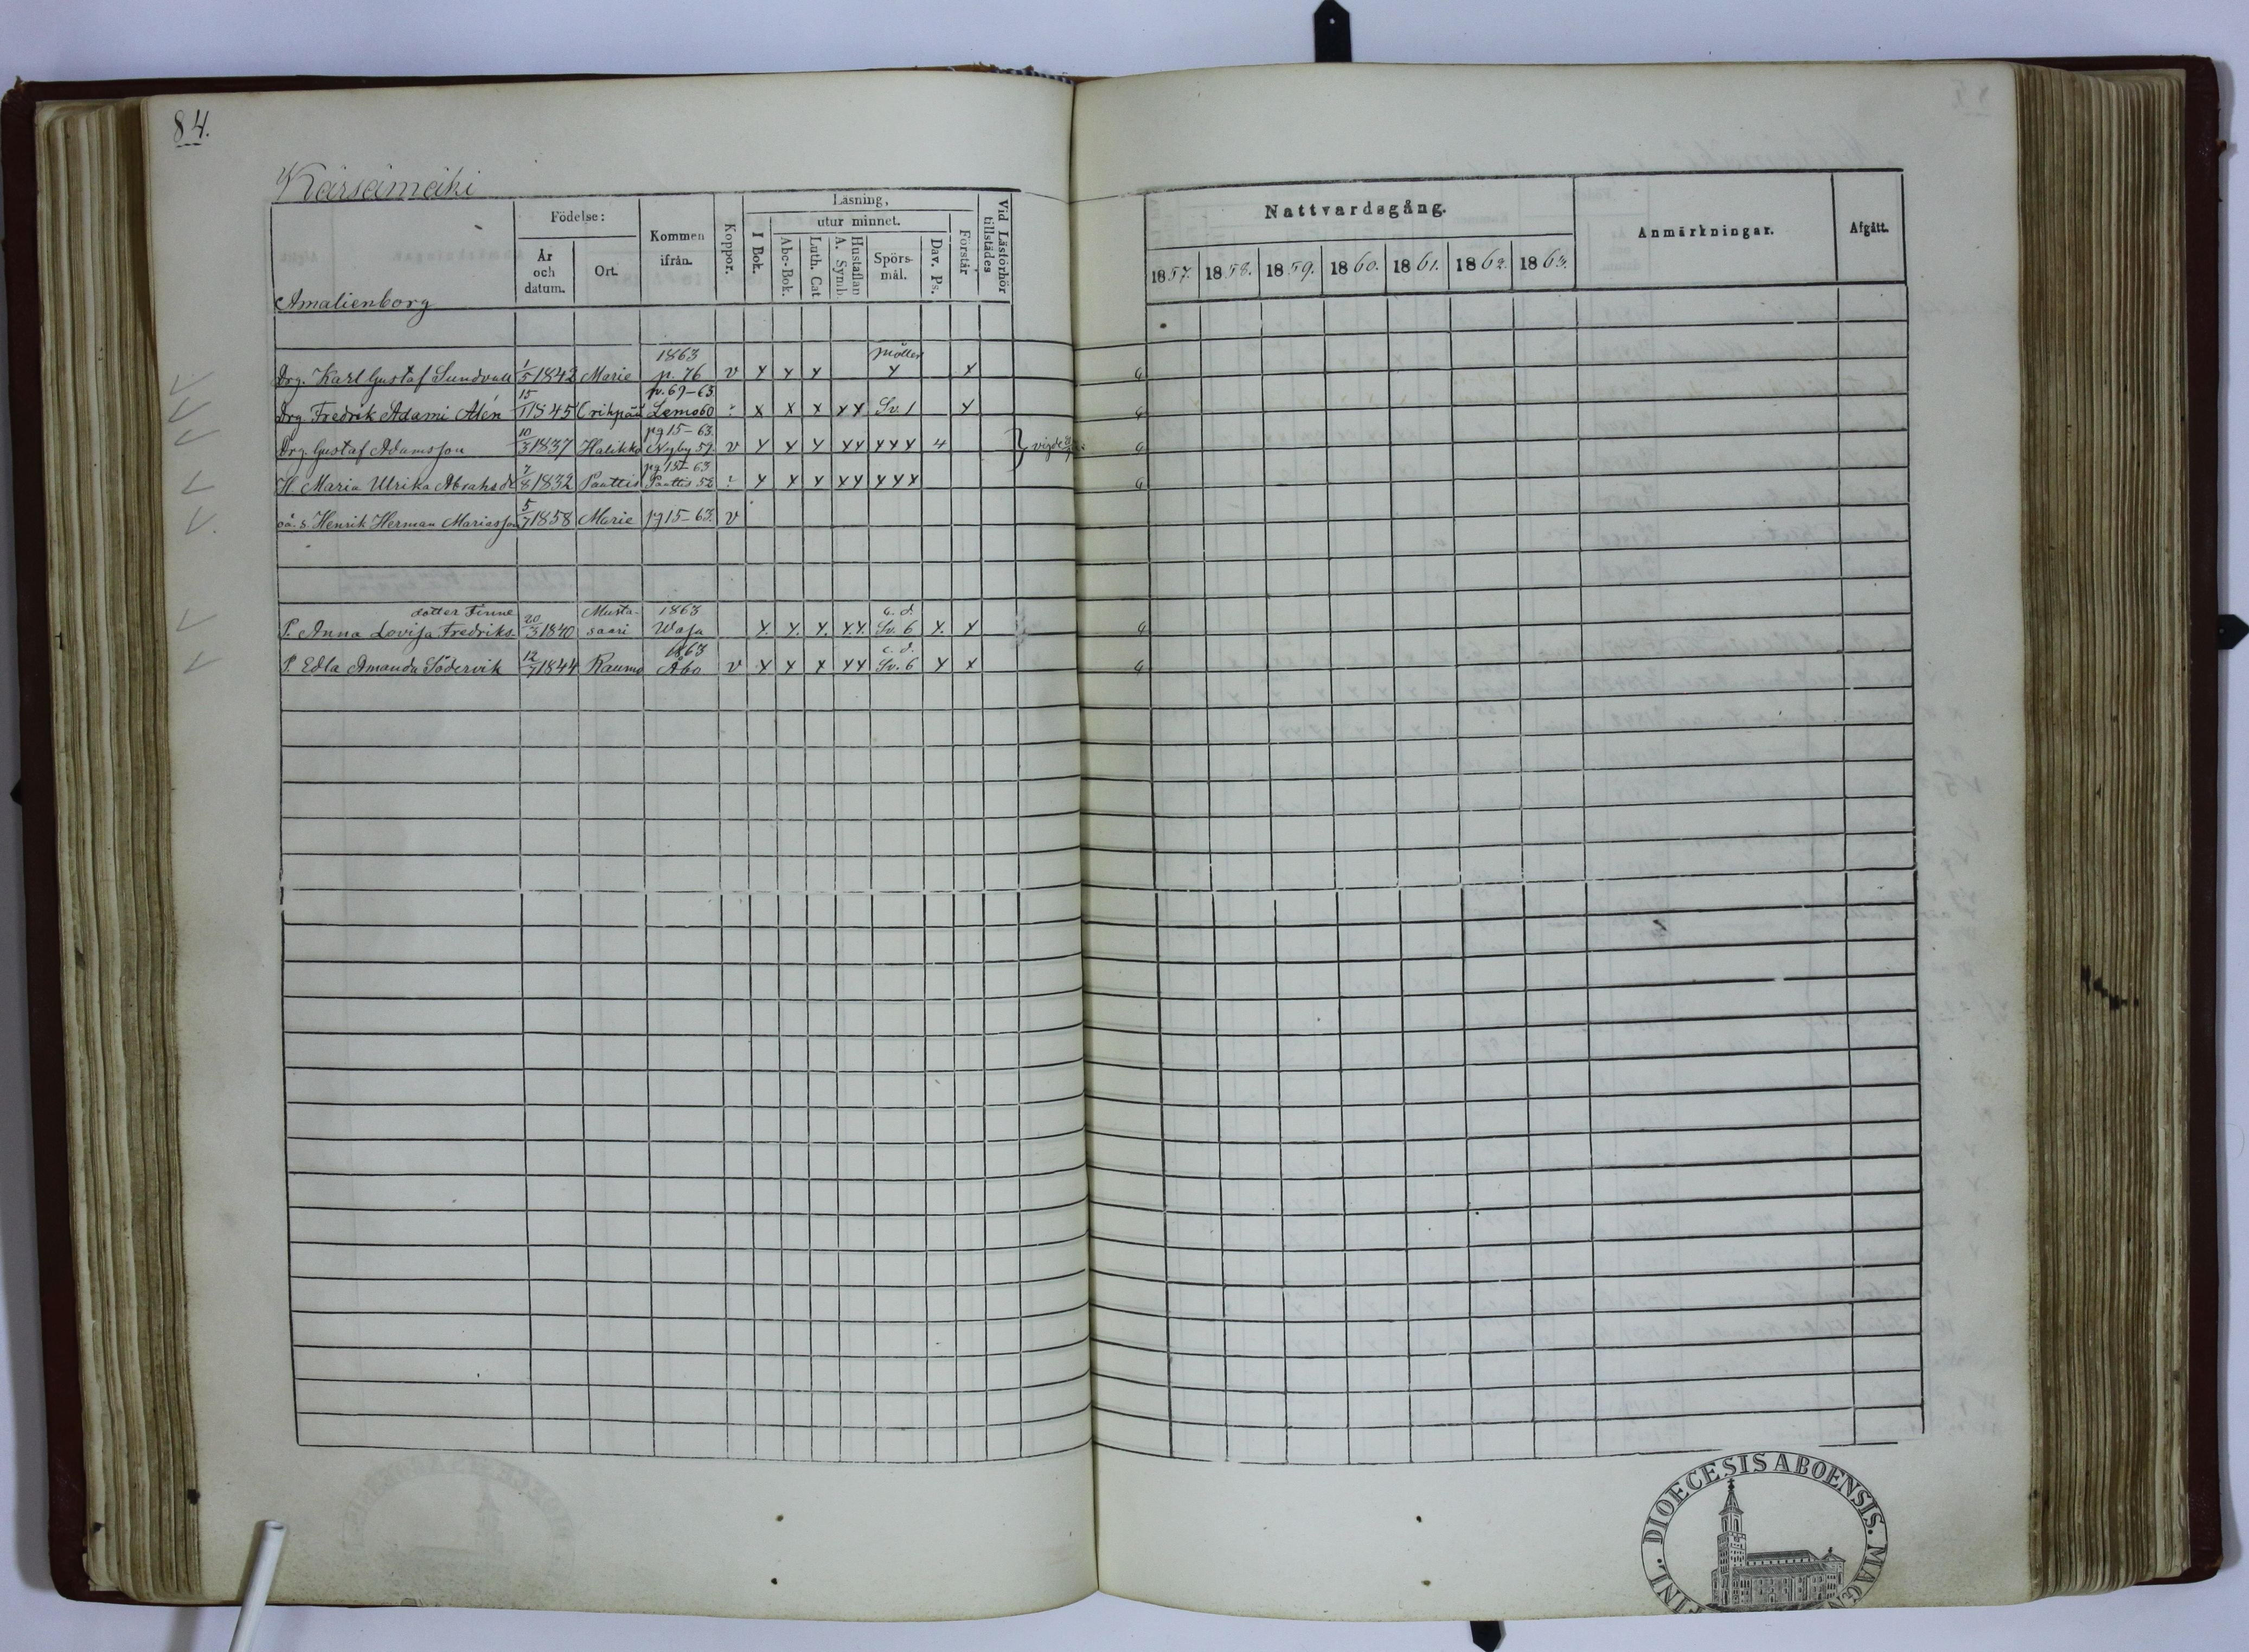 84.
Kärsämäki
Födelse:
Kommen ifrån.
Koppor.
Läsning,
utur minnet.
I Bok.
Abc-Bok.
Luth. Cat
Hustaflan A. Symb.
Spörsmål.
Dav. Ps.
Förstår
Vid Läsförhör tillstädes
År och datum.
Ort.
Amalienborg
Nattvardsgång.
Anmärkningar.
Afgått.
1857. 1858. 1859. 1860. 1861. 1862. 1863.
1863 Möller
Drg. Karl Gustaf Sundvall 1/5 1842 Marie p. 76 v x x x x x
15 p. 67-63
Drg. Fredrik Adami Alén 11 1845 Lemo 60 x x x x x Sv. 1 x
10 pg 15-63.
Drg. Gustaf Adamsson 3 1837 Halikko Nyby 59. v x x x x x x x x 4 } vigde
7 pg 15-63
H Maria Ulrika Abrahsdr 8 1832 Paattis Paattis 52 x x x x x x x x
5
oä. s. Henrik Herman Mariasson 7 1858 Marie pg 15-63. v
dotter Finne 20 Musta- 1863 c. d.
P. Anna Lovisa Fredriks- 3 1840 saari Wasa x. x. x. x.x. Sv. 6 x. x
12 1863 c. d.
P. Edla Amanda Södervik 7 1844 Raumo Åbo v x x x x x Sv. 6 x x
FINL. DIOECESIS ABOENSIS. MAGN